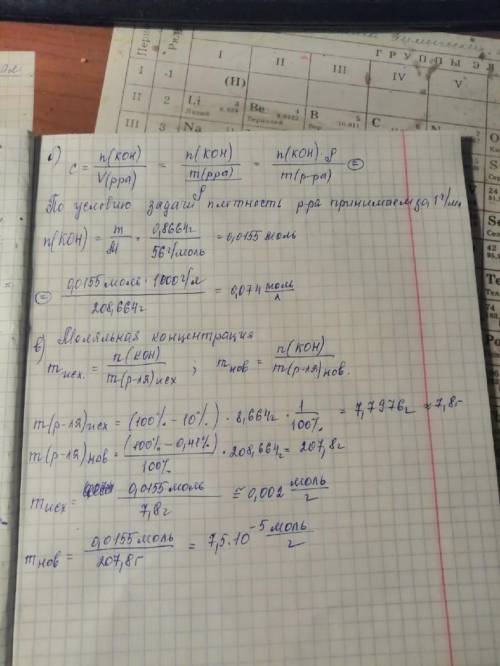 ГРУППЫ ЭЛ
I II III IV V
(H)
I 1
II 2 Li Be B C
III 3 Na
б) c = n(КОН) / V(р-ра) = n(КОН) / (m(р-ра) / ρ) = n(КОН)·ρ / m(р-ра) =
По условию задачи плотность р-ра принимаем за 1 г/мл
n(КОН) = m / M = 0,8664г / 56 г/моль = 0,0155 моль
= 0,0155 моль · 1000 г/л / 208,664г = 0,074 моль/л
в) Моляльная концентрация
m исх. = n(КОН) / m(р-ля)исх , m нов = n(КОН) / m(р-ля)нов.
m(р-ля)исх = (100% – 10%) · 8,664г · 1/100% = 7,7976г ≈ 7,8г
m(р-ля)нов = (100% – 0,41%) / 100% · 208,664г = 207,8г
m исх = 0,0155 моль / 7,8г ≅ 0,002 моль/г
m нов = 0,0155 моль / 207,8г = 7,5·10^-5 моль/г